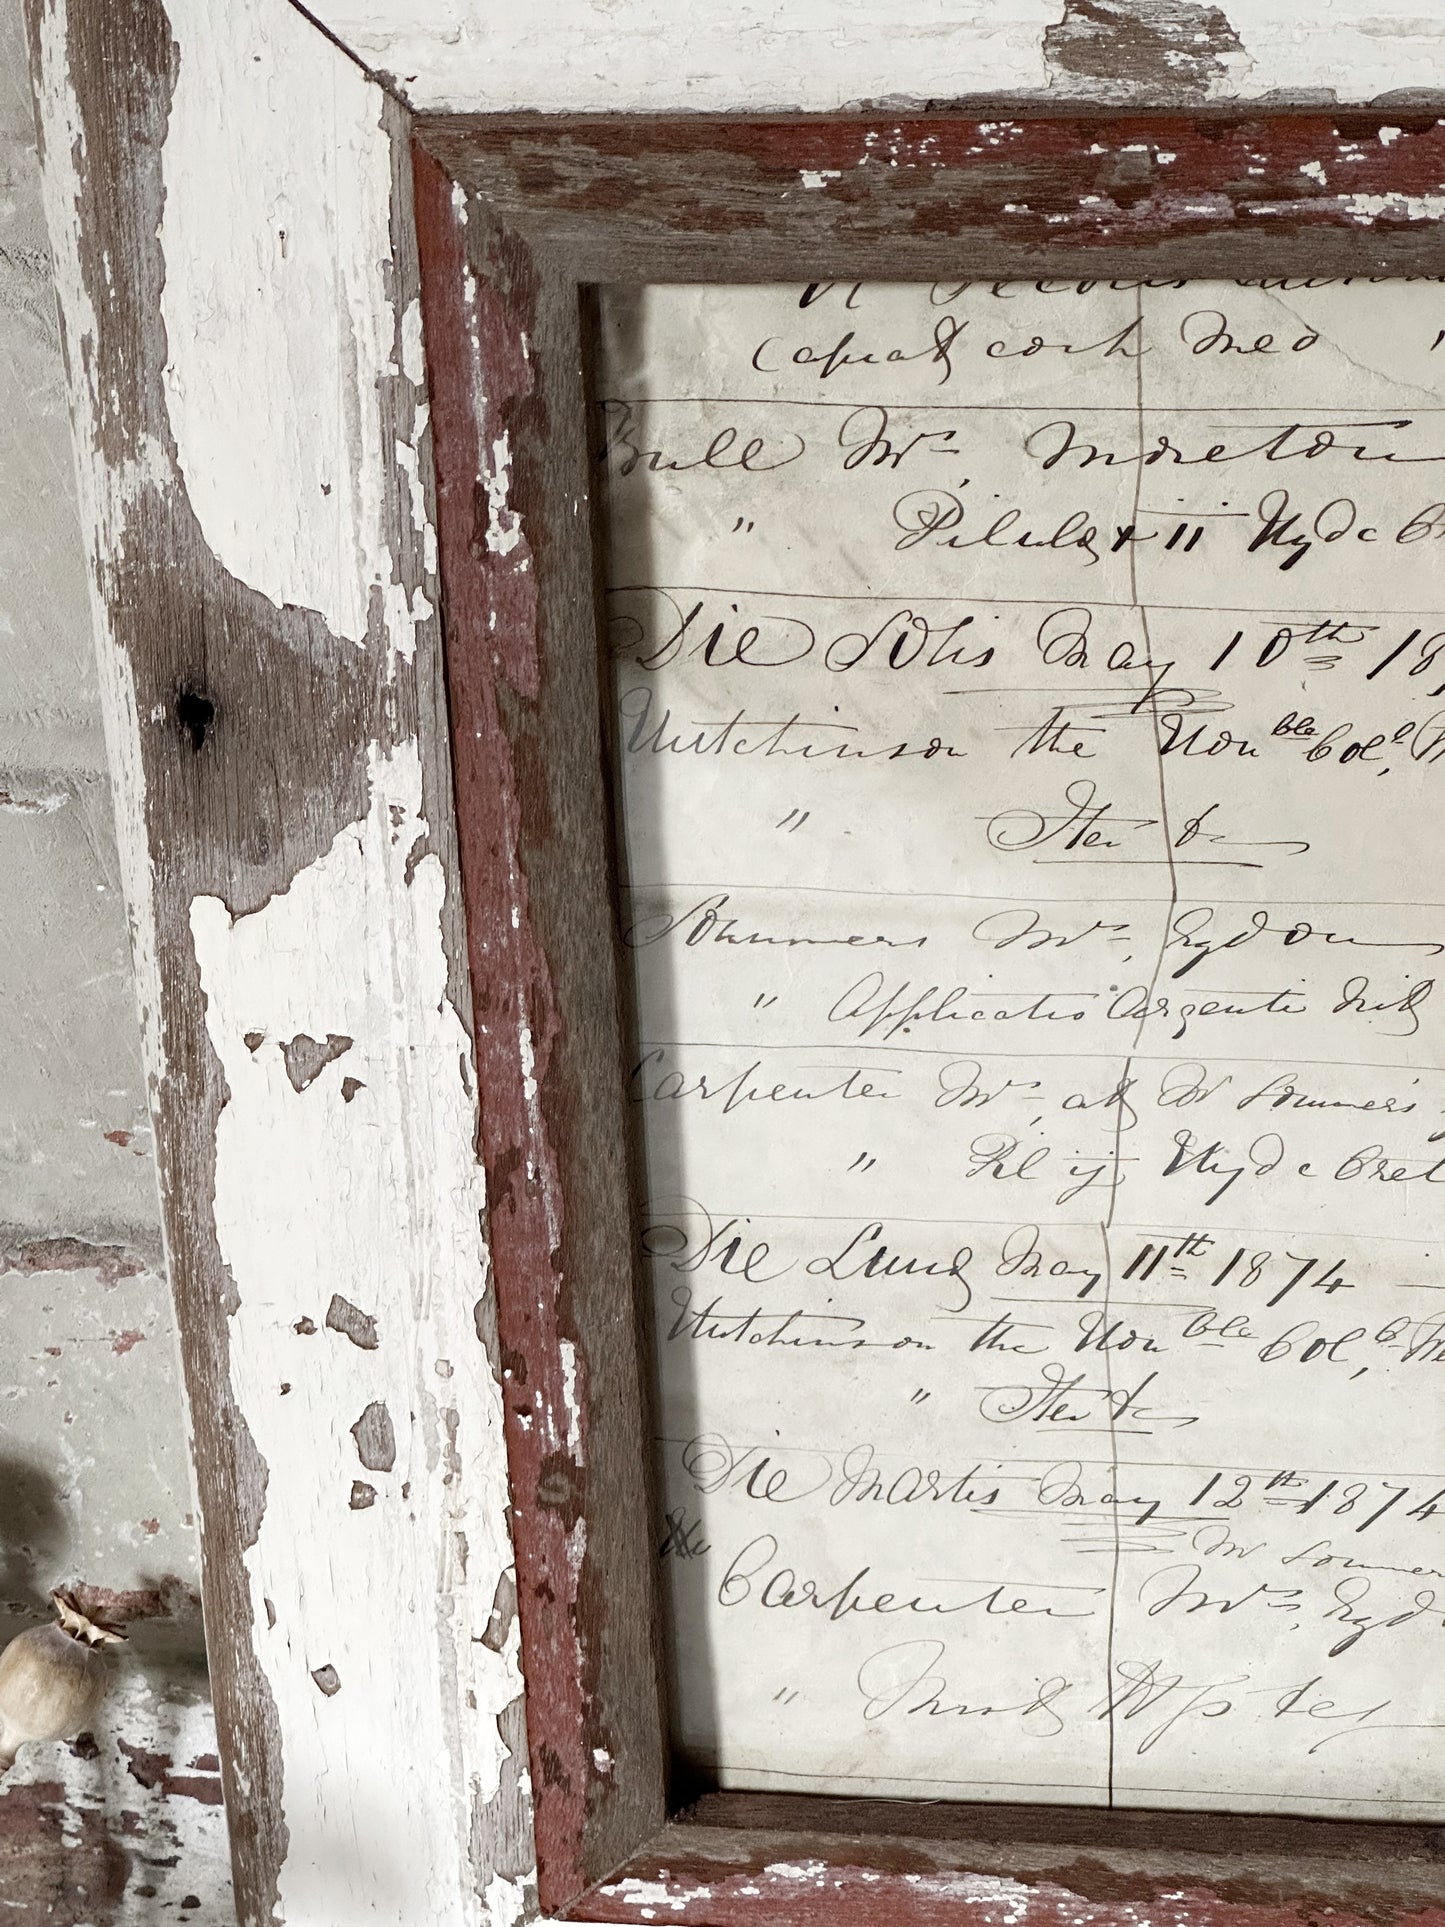 cock Med
Bull Mrs, Moreton
" Pil ii Hyd c
Die Solis May 10th 18
Hutchinson the Honble Coll,
" Iter &c
Sommers Mrs, Eydon
" Applicatio Argenti Nit
Carpenter Mrs, at W Sommers
" Pil ij Hyd c Cret
Die Lunæ May 11th 1874
Hutchinson the Honble Coll,
" Iter &c
Die Martis May 12th 1874
Carpenter Mrs, Eyd
"